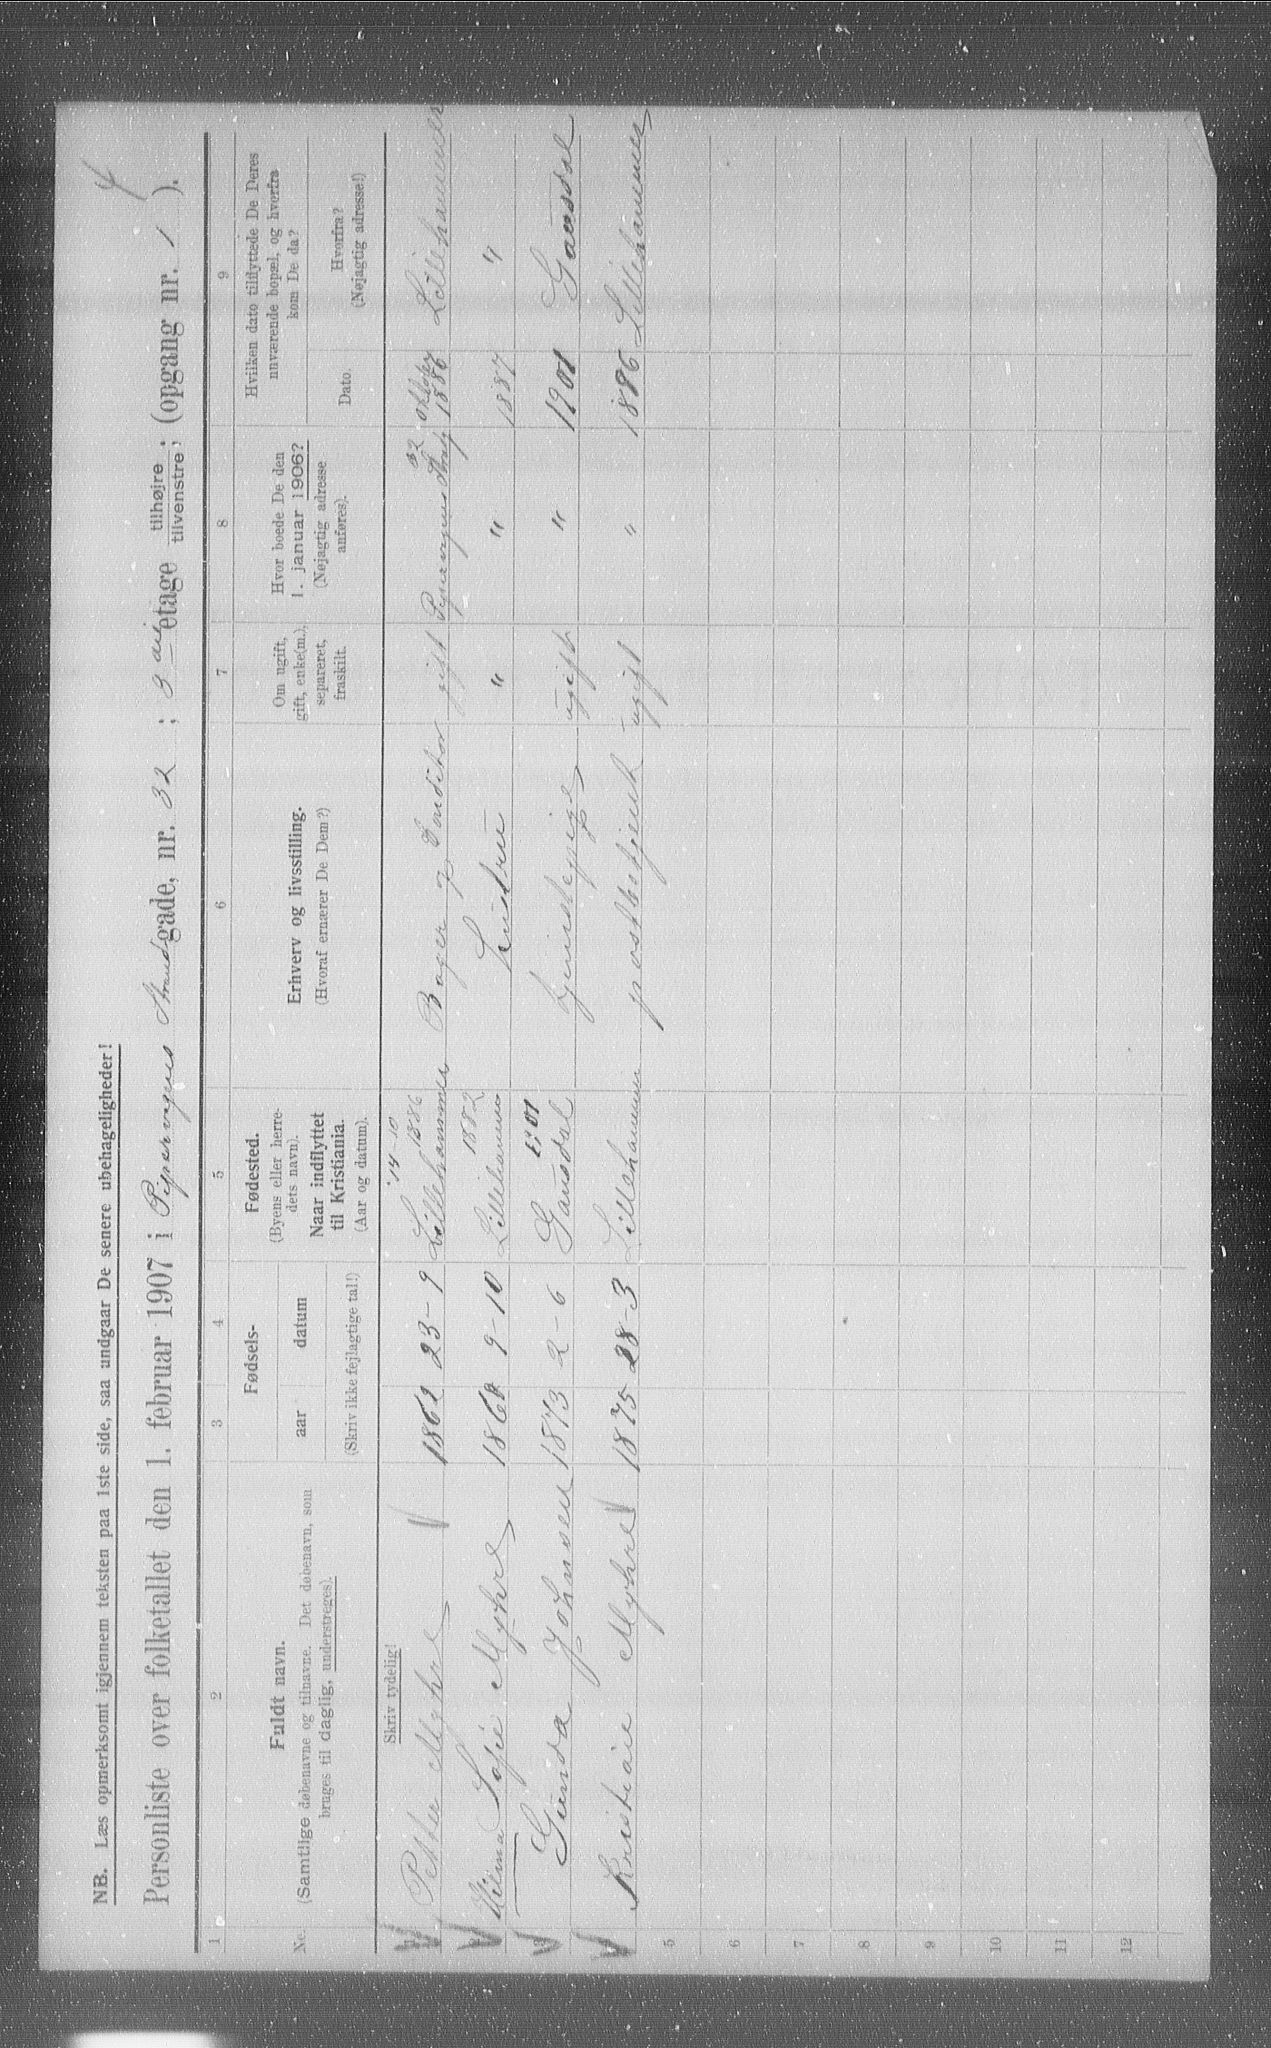 4
NB. Læs opmerksomt igjennem teksten paa 1ste side, saa undgaar De senere ubehageligheder!
Personliste over folketallet den 1. februar 1907 i Pipervigens Strandgade, nr. 32 ; 3 die etage tilhøjre ; tilvenstre; (opgang nr. 1 ).
1 2 3 4 5 6 7 8 9
No. Fuldt navn.
(Samtlige døbenavne og tilnavne. Det døbenavn, som
bruges til daglig, understreges).
Fødsels-
aar datum
(Skriv ikke fejlagtige tal!)
Fødested.
(Byens eller herre-
dets navn).
Naar indflyttet
til Kristiania.
(Aar og datum).
Erhverv og livsstilling.
(Hvoraf ernærer De Dem?)
Om ugift,
gift, enke(m.),
separeret,
fraskilt.
Hvor boede De den
1. januar 1906?
(Nøjagtig adresse
anføres).
Hvilken dato tilflyttede De Deres
nuværende bopæl, og hvorfra
kom De da?
Dato.
Hvorfra?
(Nøjagtig adresse!)
Skriv tydelig!
1 Petter Myhre 1861 23-9 Lillehammer 14-10 1886 Bager & Conditor gift Pipervigens Strdg 32 Oktober 1886 Lillehammer
2 Hilma Sofie Myhre 9-10 Lillehammer Hustru " " 1887 "
3 Gunda Johansen 1873 2-6 Gausdal 01 tjenestepige ugift " 1901 Gausdal
4 Kristian Myhre 1875 28-3 Lillehammer postbetjent ugift " 1886 Lillehammer
5
6
7
8
9
10
11
12